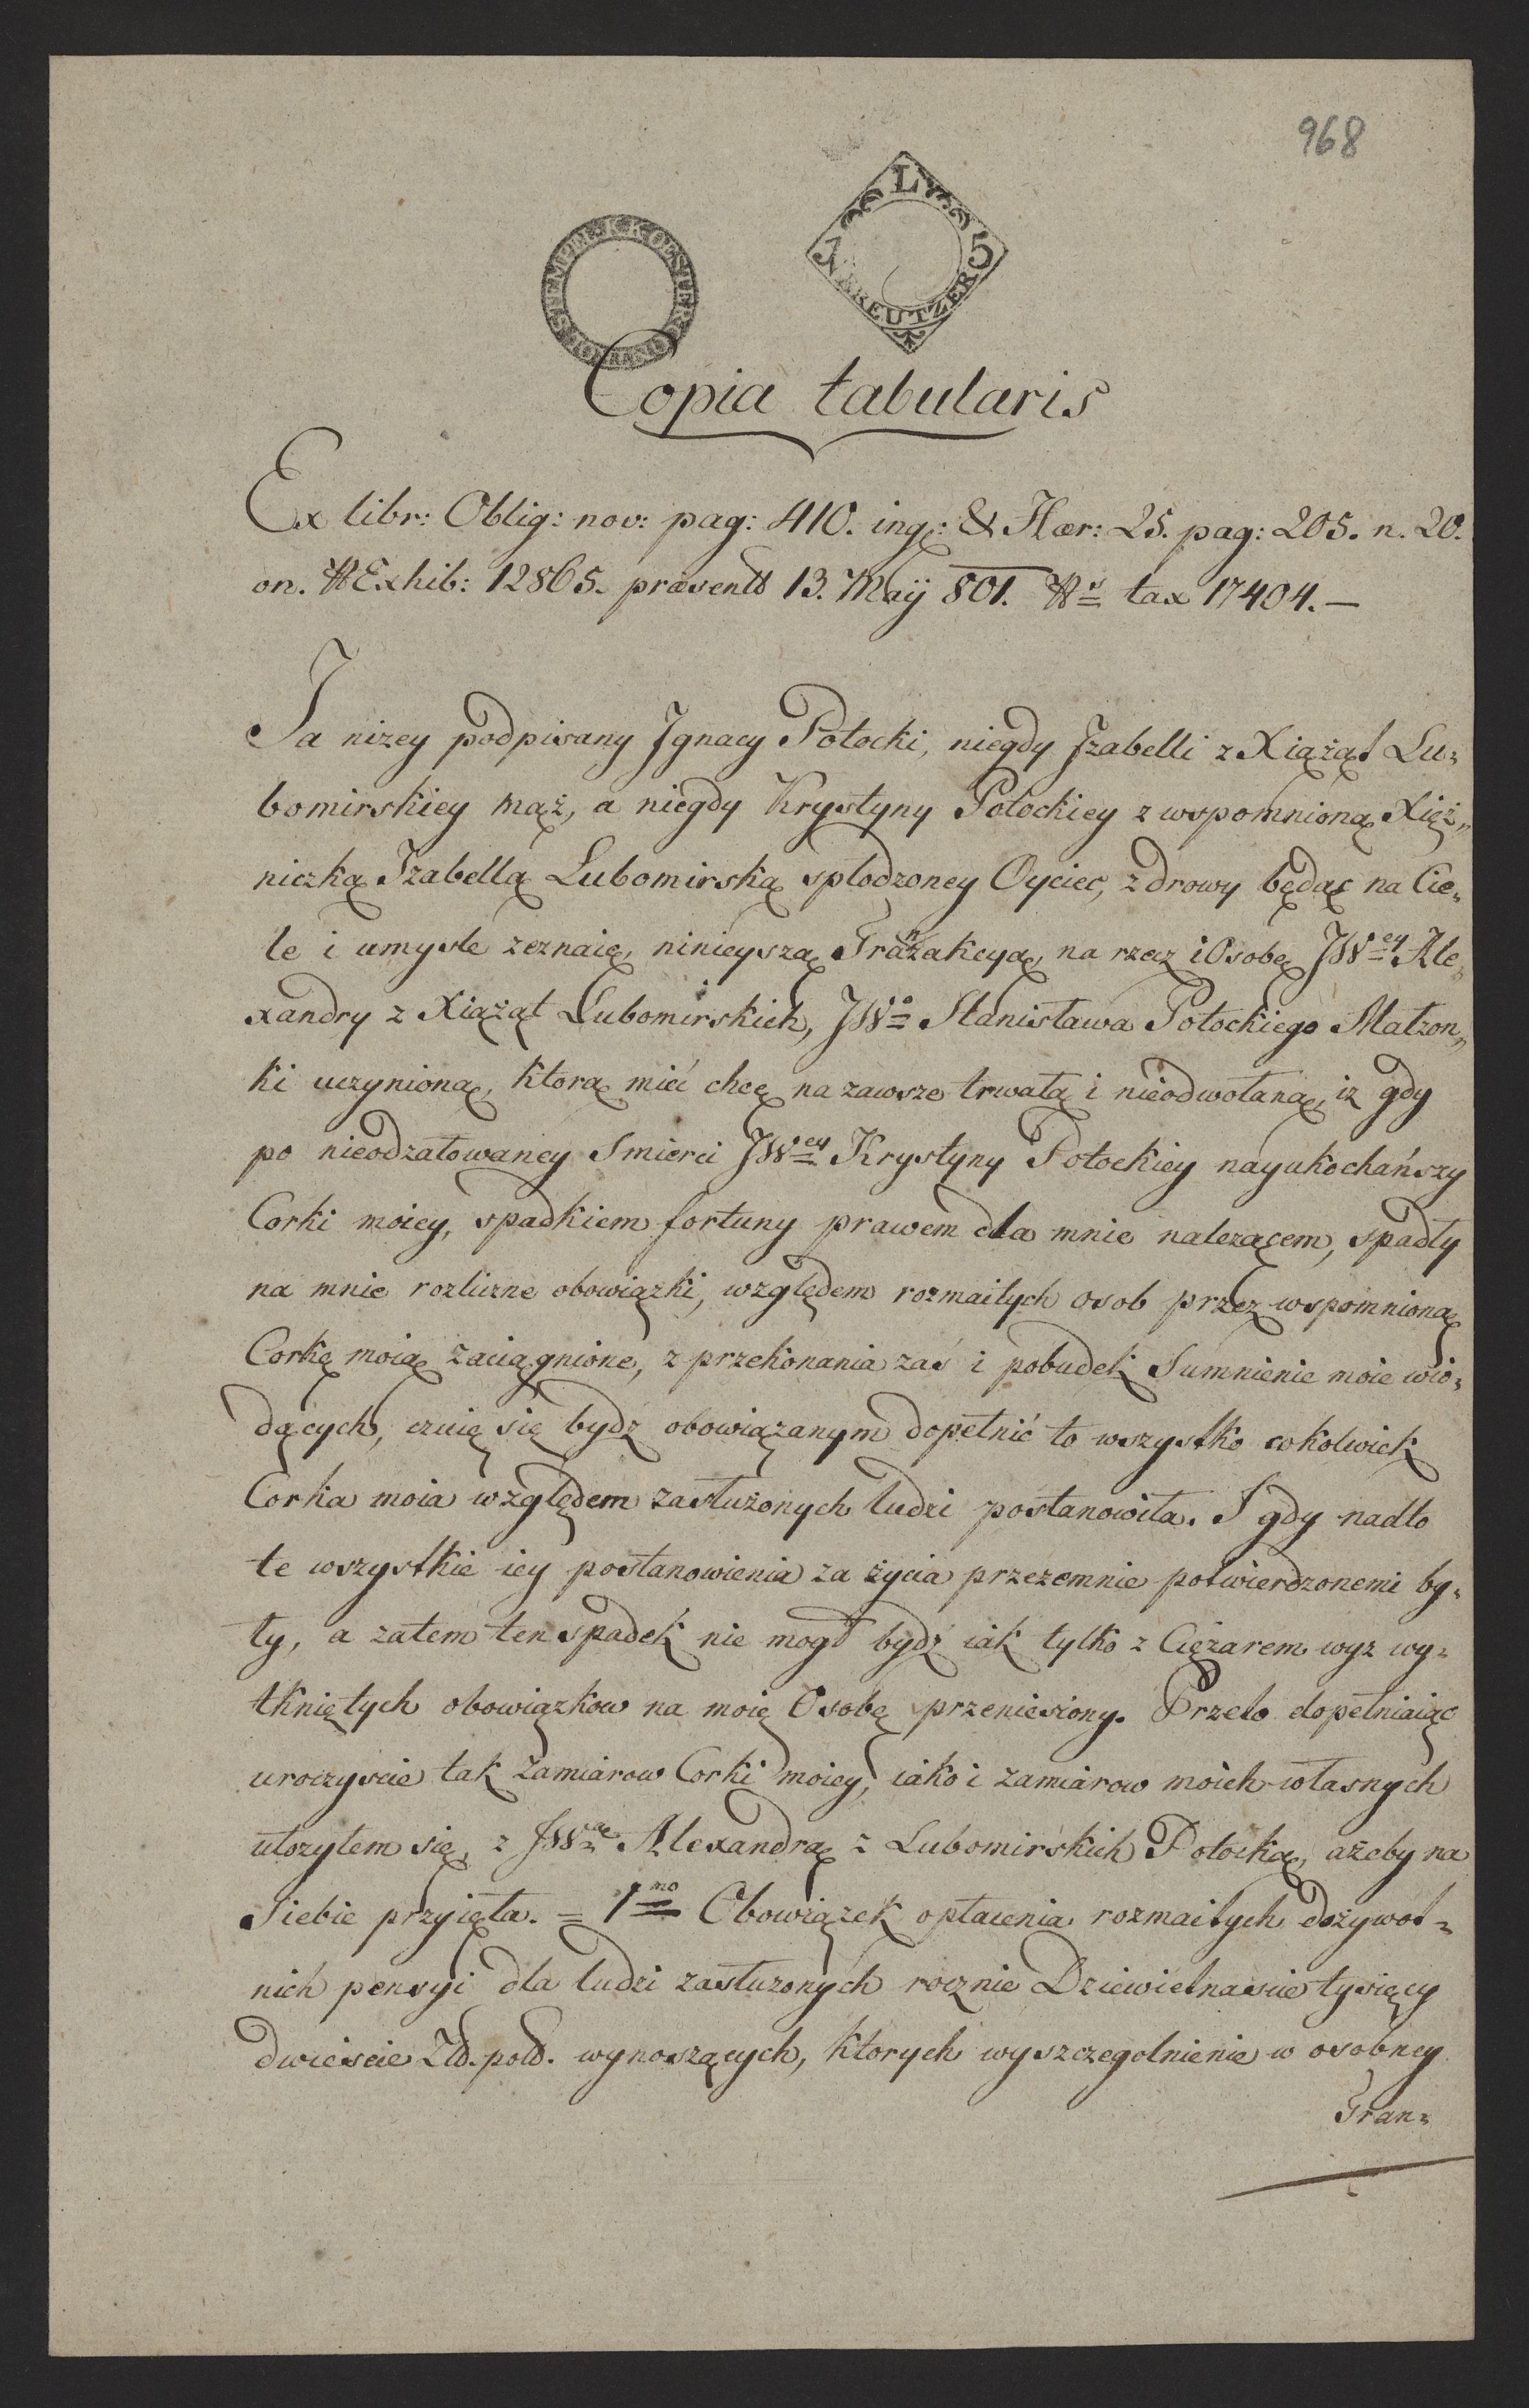 968
LY
5 5
KREUTZER
STEMPEL K K OESTERR
Copia tabularis
Ex libr: Oblig: nov: pag: 410. ing: & Hær: 25. pag: 205. n. 20.
on. NExhib: 12865. præsent 13. Maÿ 801. Ns tax 17404.—
Ja nizey podpisany Jgnacy Potocki, niegdy Jzabelli z Xiążąt Lu=
bomirskiey mąż, a niegdy Krystyny Potockiey z wspomnioną Xięż„
niczką Jzabellą Lubomirską splodzoney Oyciec, zdrowy będąc na Cie„
le i umysle zeznaię, ninieyszą Tranzakcyą, na rzecz i Osobę JWey Ale„
xandry z Xiążąt Lubomirskich, JWo Stanisława Potockiego Małzon„
ki uczynioną, ktorą mieć chcę na zawsze trwałą i nieodwołaną, iz gdy
po nieodzałowaney Smierci JWey Krystyny Potockiey nayukochańszy
Corki moiey, spadkiem fortuny prawem dla mnie nalezącem, spadły
na mnie rozliczne obowiązki, względem rozmaitych osob przez wspomnioną
Corkę moię zaciągnione, z przekonania zaś i pobudek Sumnienie moie wio=
dących, czuię się bydz obowiązanym dopełnić to wszystko cokolwiek
Corka moia względem zasłużonych ludzi postanowiła. I gdy nadto
te wszystkie iey postanowienia za życia przezemnie potwierdzonemi by=
ły, a zatem ten spadek nie mogł bydź iak tylko z Ciężarem wyz wy=
tkniętych obowiązkow na moię Osobę przeniesiony. Przeto dopełniaiąc
uroczyscie tak zamiarow Corki moiey, iako i zamiarow moich własnych
ułozyłem się, z JWą Alexandrą z Lubomirskich Potocką, ażeby na
Siebie przyięła. = 1mo Obowiązek opłacenia rozmaitych dożywot=
nich pensyi dla ludzi zasłuzonych rocznie Dziewietnascie tysięcy
dwieście Zł. pol. wynoszących, ktorych wyszczegolnienie w osobney
Tran=